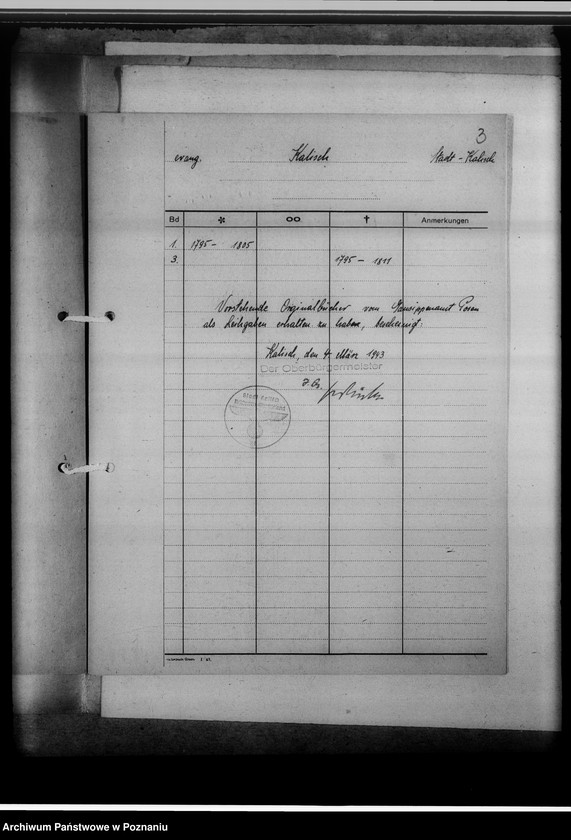 3
evang. Kalisch Stadt - Kalisch
Bd * oo † Anmerkungen
1. 1795 - 1805
3. 1795 - 1811
Vorstehende Originalbücher vom Gausippenamt Posen
als Leihgaben erhalten zu haben, bescheinigt:
Kalisch, den 4. März 1943
Der Oberbürgermeister
Archiwum Państwowe w Poznaniu